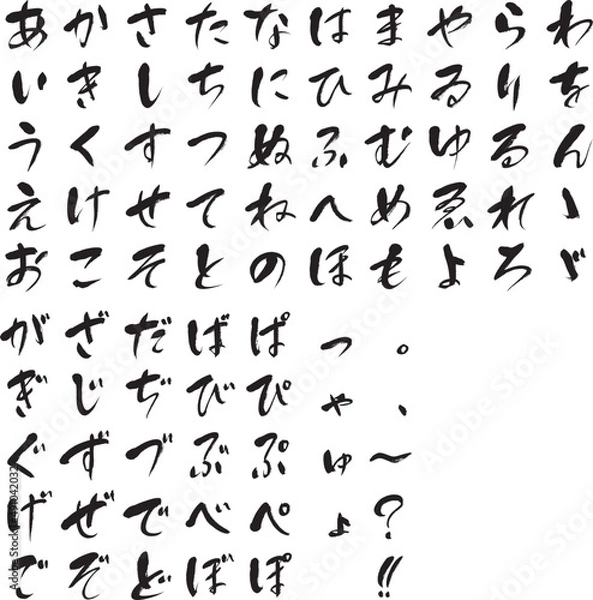 あ か さ た な は ま や ら わ
い き し ち に ひ み ゐ り を
う く す つ ぬ ふ む ゆ る ん
え け せ て ね へ め ゑ れ ゝ
お こ そ と の ほ も よ ろ ゞ
が ざ だ ば ぱ っ 。
ぎ じ ぢ び ぴ ゃ 、
ぐ ず づ ぶ ぷ ゅ 〜
げ ぜ で べ ぺ ょ ?
ご ぞ ど ぼ ぽ !!
Adobe Stock